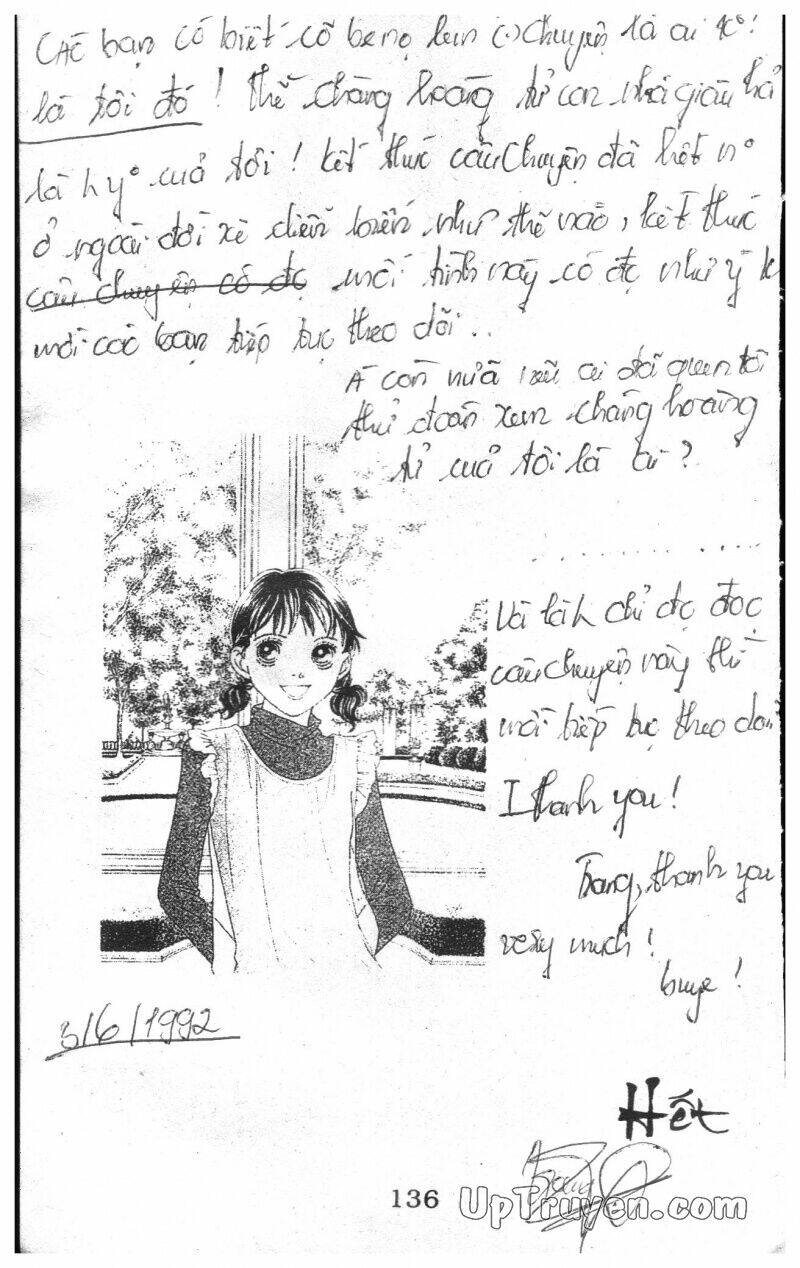 CÁC bạn có biết cô bé nọ (.) chuyện là ai ko?
là tôi đó! thế chàng hoàng tử con nhà giàu
là hyo cuả tôi! kết thúc câu chuyện đã hết no
ở ngoài đời xẽ diễn biến như thế nào, kết thúc
câu chuyện có đc mối tình này có đc như ý k
mời các bạn tiếp tục theo dõi..
À còn nữa ai đã quen tôi
thử đoán xem chàng hoàng
tử cuả tôi là ai?
Và chỉ đc đọc
câu chuyện này thì
mời tiếp tục theo doi
I thank you!
Trang, thank you
very much!
buye!
3/6/1992
Hết
136
UpTruyen.com